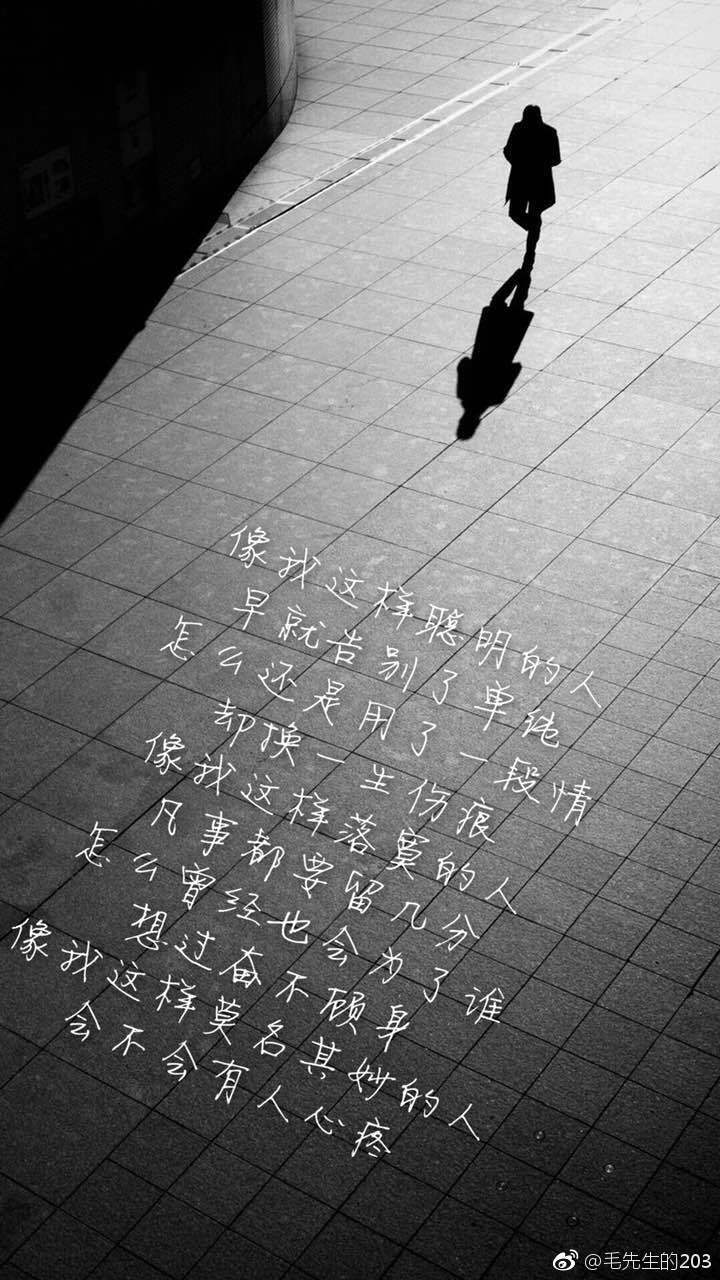 像我这样聪明的人
早就告别了单纯
怎么还是用了一段情
却换一生伤痕
像我这样落寞的人
凡事都要留几分
怎么曾经也会为了谁
想过奋不顾身
像我这样莫名其妙的人
会不会有人心疼
@毛先生的203